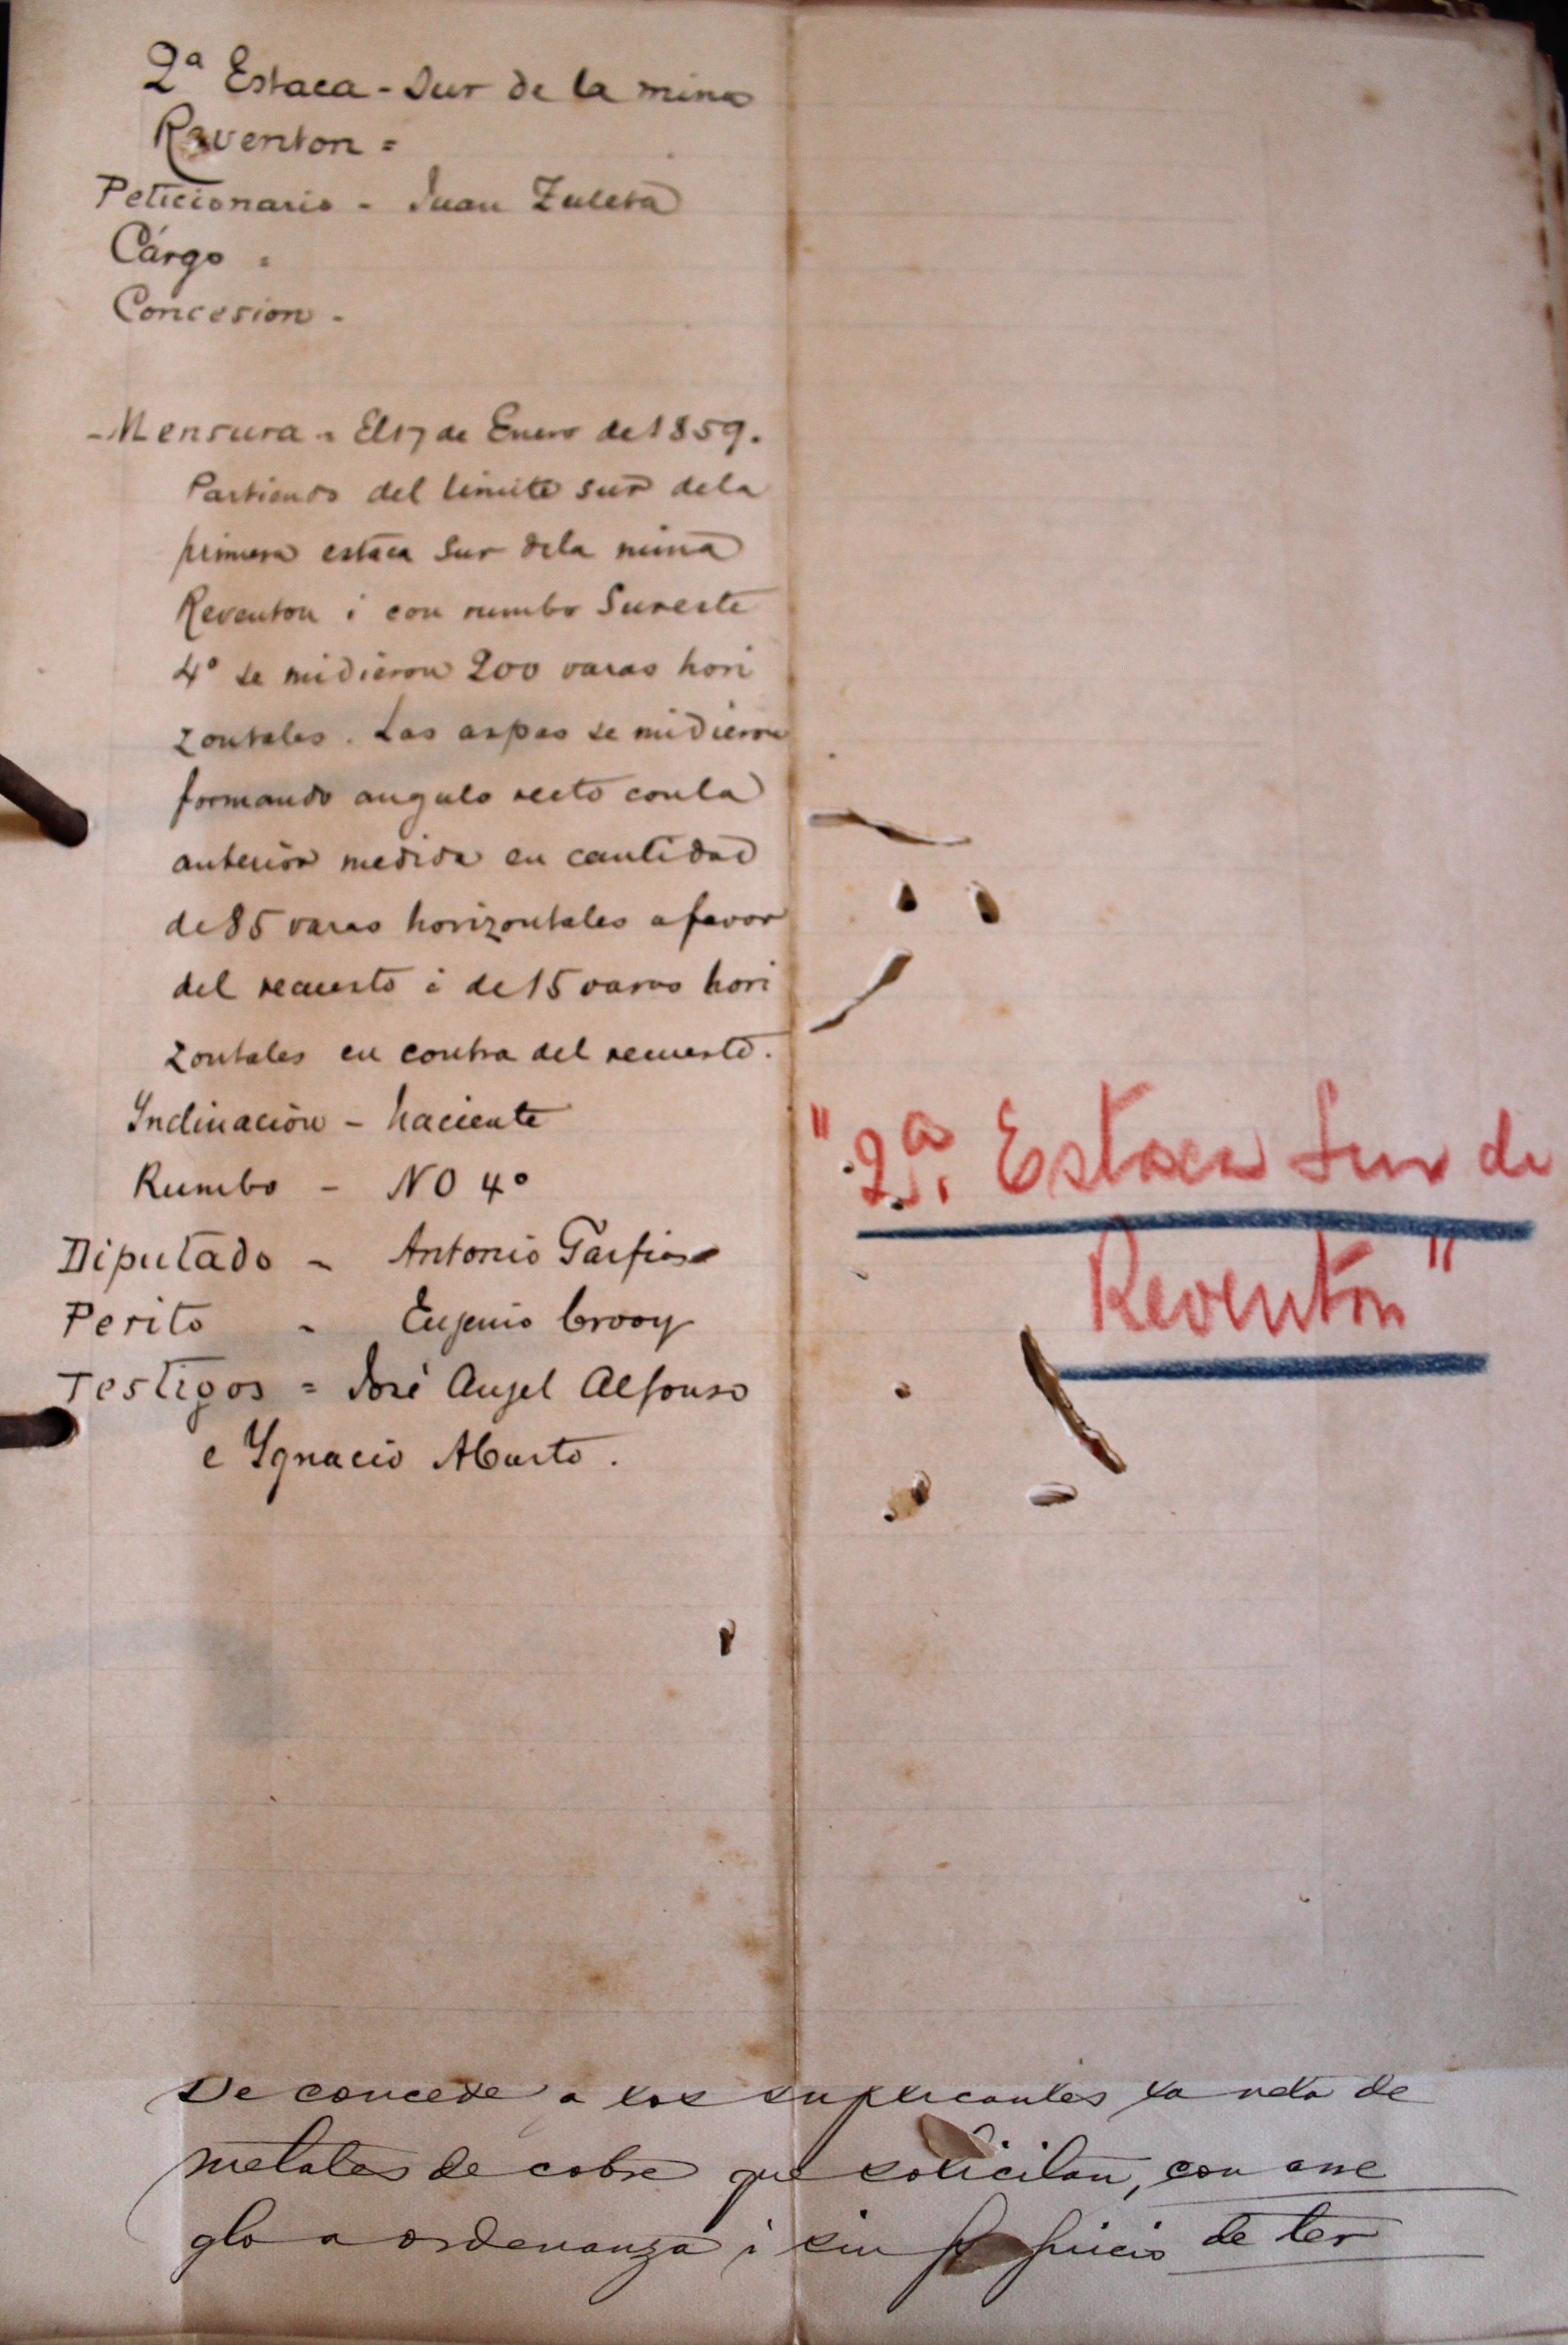 2ª Estaca - Sur de la mina
Reventon =
Peticionario - Juan Zuleta
Cárgo =
Concesion -
- Mensura - El 17 de Enero de 1859.
Partiendo del limite sur dela
primera estaca Sur dela mina
Reventon i con rumbo Sureste
4° se midieron 200 varas hori
zontales. Las aspas se midieron
formando angulo recto conla
anterior medida en cantidad
de 85 varas horizontales a favor
del recuesto i de 15 varas hori
zontales en contra del recuesto.
Inclinación - haciente
Rumbo - NO 4°
Diputado - Antonio Garfias
Perito - Eugenio Crooy
Testigos = José Angel Alfonso
e Ygnacio Aburto.
"2ª. Estaca Sur de
Reventon"
Se concede a los suplicantes la veta de
metales de cobre que solicitan, con arre
glo a ordenanza i sin de ter